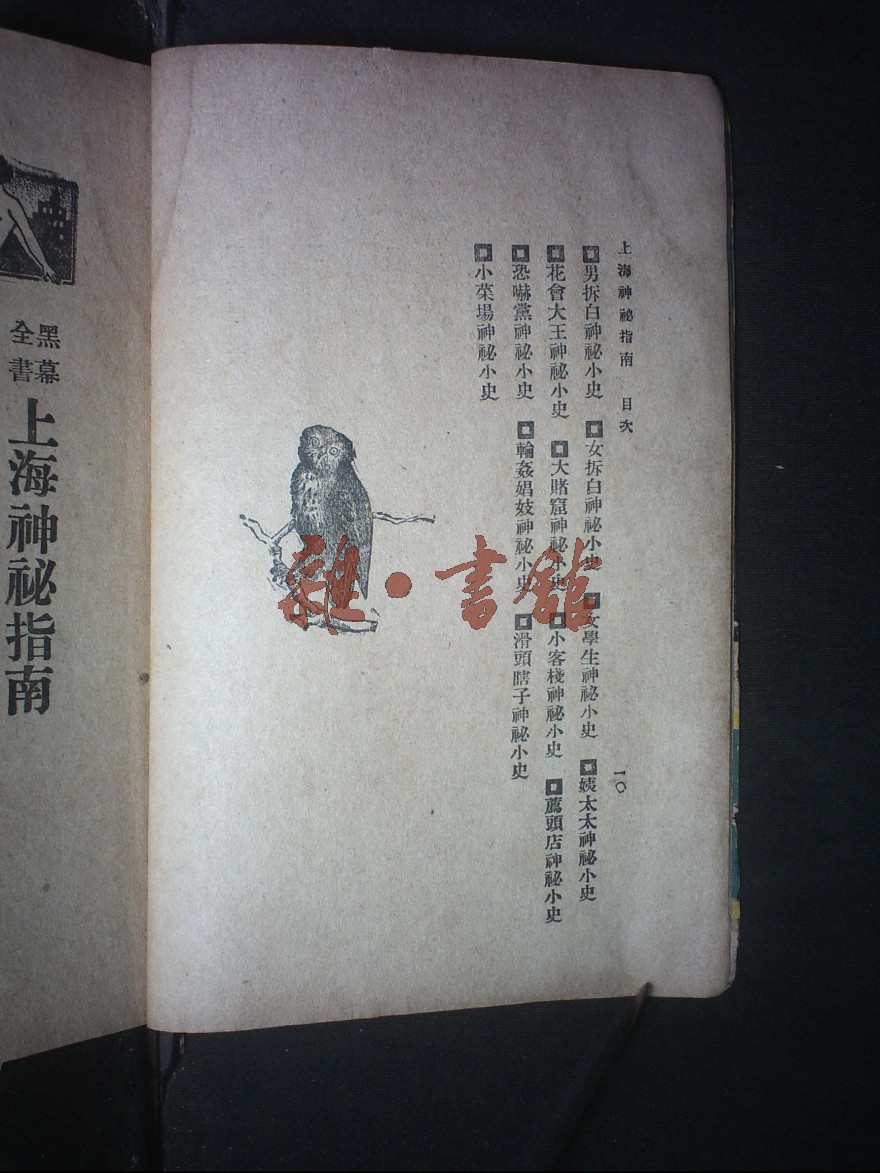 上海神祕指南　目次　一〇
▣男拆白神祕小史　▣女拆白神祕小史　▣女學生神祕小史　▣姨太太神祕小史
▣花會大王神祕小史　▣大賭窟神祕小史　▣小客棧神祕小史　▣薦頭店神祕小史
▣恐嚇黨神祕小史　▣輪姦娼妓神祕小史　▣滑頭瞎子神祕小史
▣小菜場神祕小史
雜·書館
黑幕
全書
上海神祕指南